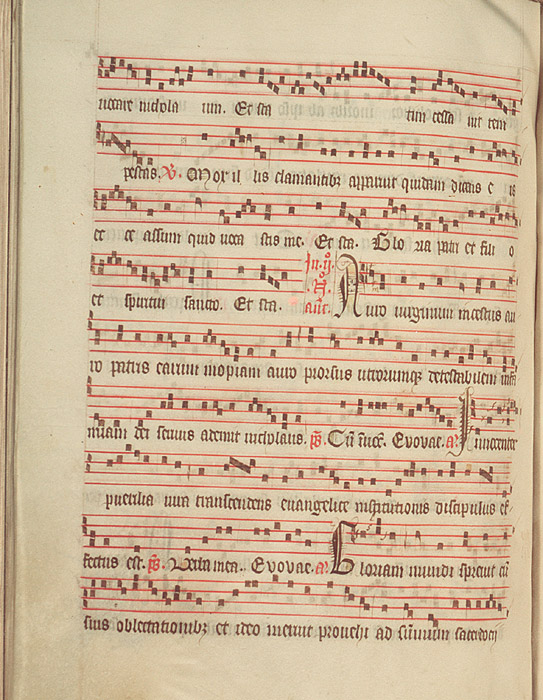 uocare nichola um. Et sta tim cessa uit tem
pestas. V. Mox il lis clamantibꝫ apparuit quidam dicens e is
et ce assum quid uoca stis me. Et sta. Glo ria patri et fili o
et spiritui sancto. Et sta. In. ij. N. añt. Auro uirginum incestus au
ro patris earum inopiam auro prorsus utrorumqꝫ detestabilem infa
miam dei seruus ademit nicholaus. ps. Cū inuoc. Evovae. a. Innocenter
puerilia iura transcendens euangelice institutionis discipulus ef
fectus est. ps. Verba mea. Evovae. a. Gloriam mundi spreuit cū
suis oblectationibꝫ et ideo meruit prouehi ad sūmum sacerdocij